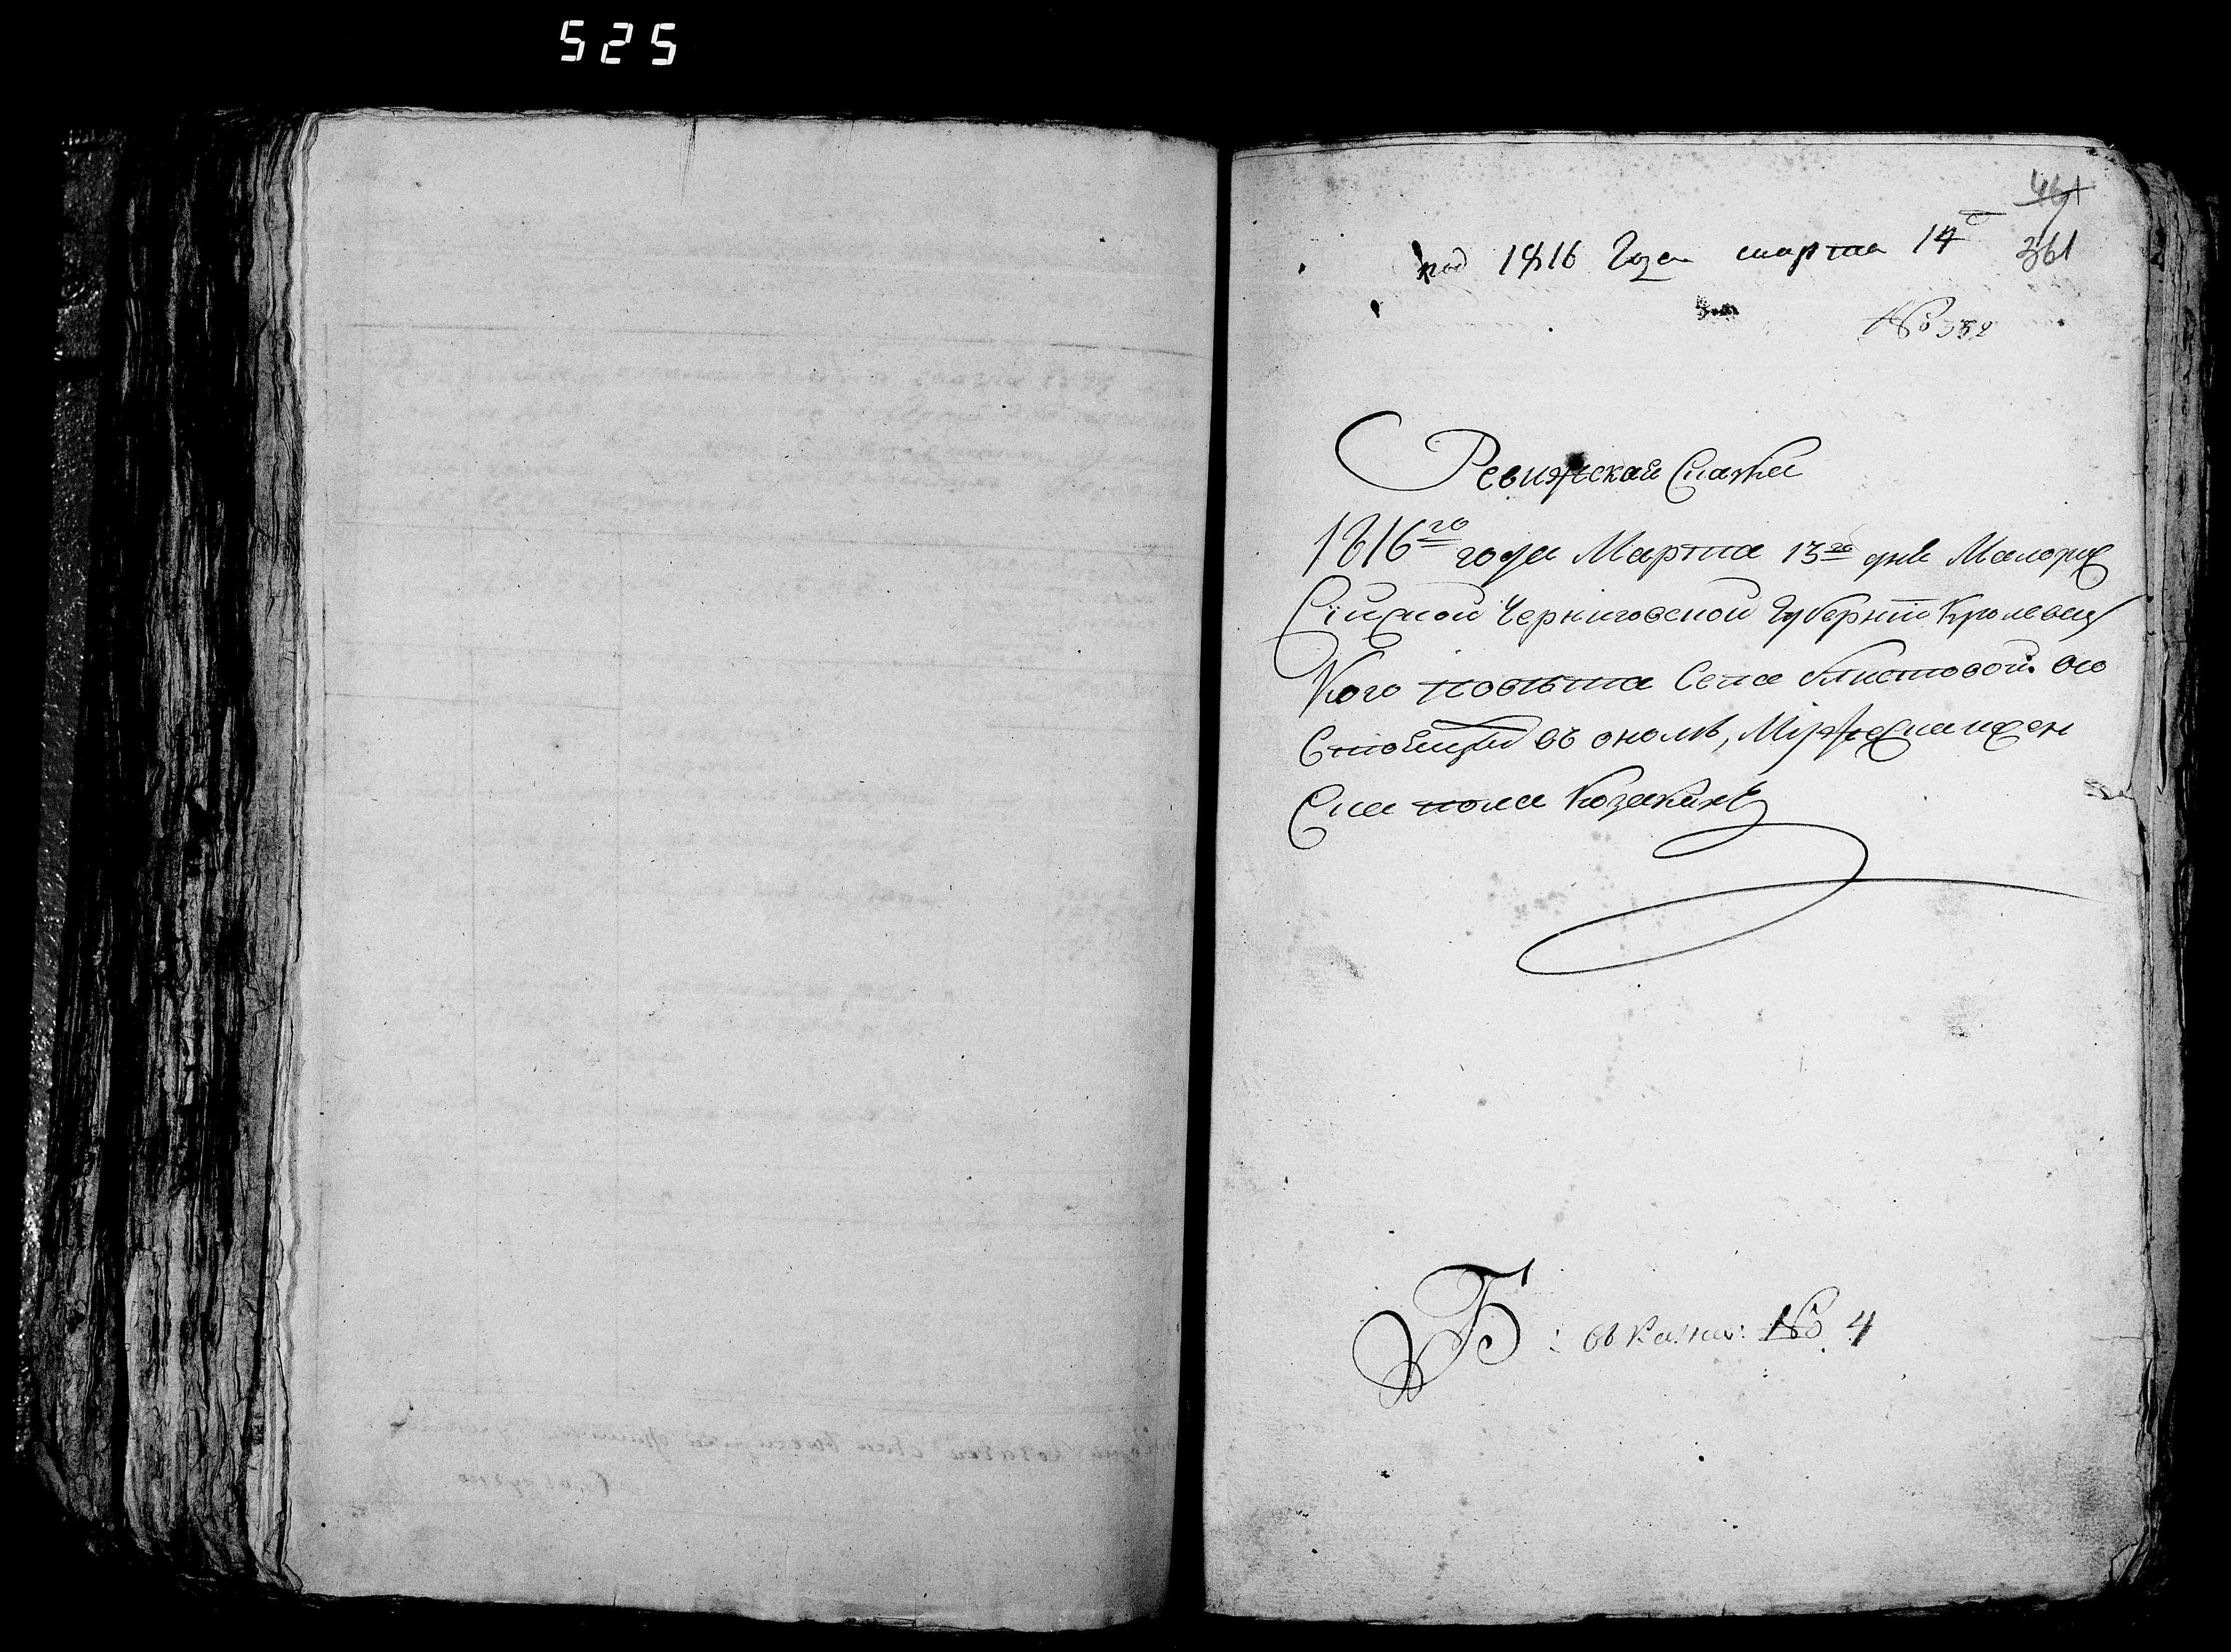 525
461
361
под 1816 Года марта 14
№ 332
Ревижская Скаска
1816го года Марта 13го дня Малорос
Сийской Черниговской Губернии Кролевец
Кого повета Села Клистовой. осо
Стоящии въ ономъ, Мужеска и жен
Ска пола Козакахъ
Б: въ казна: № 4